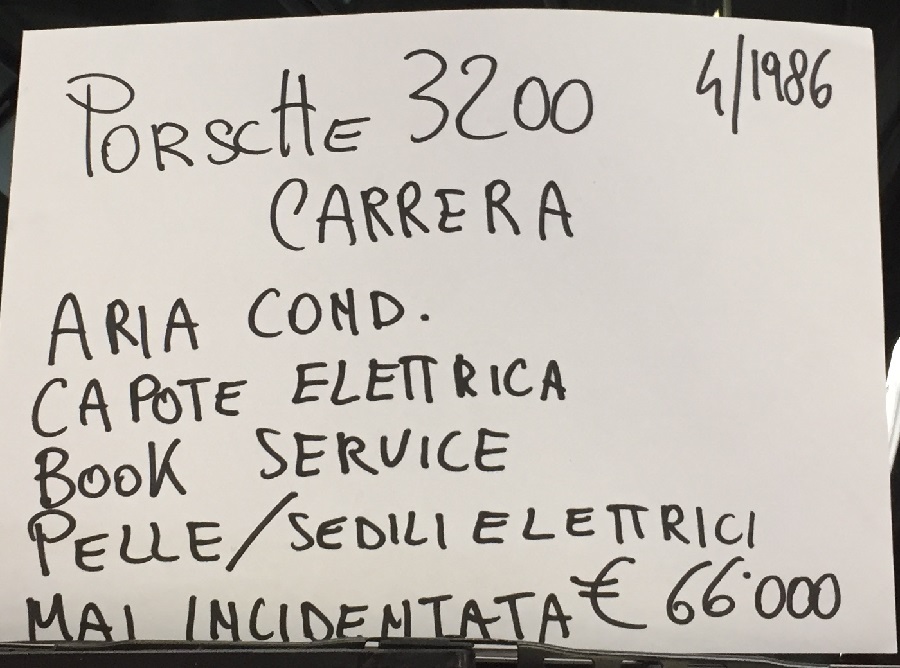 PORSCHE 3200 4/1986
CARRERA
ARIA COND.
CAPOTE ELETTRICA
BOOK SERVICE
PELLE/SEDILI ELETTRICI
MAI INCIDENTATA € 66'000